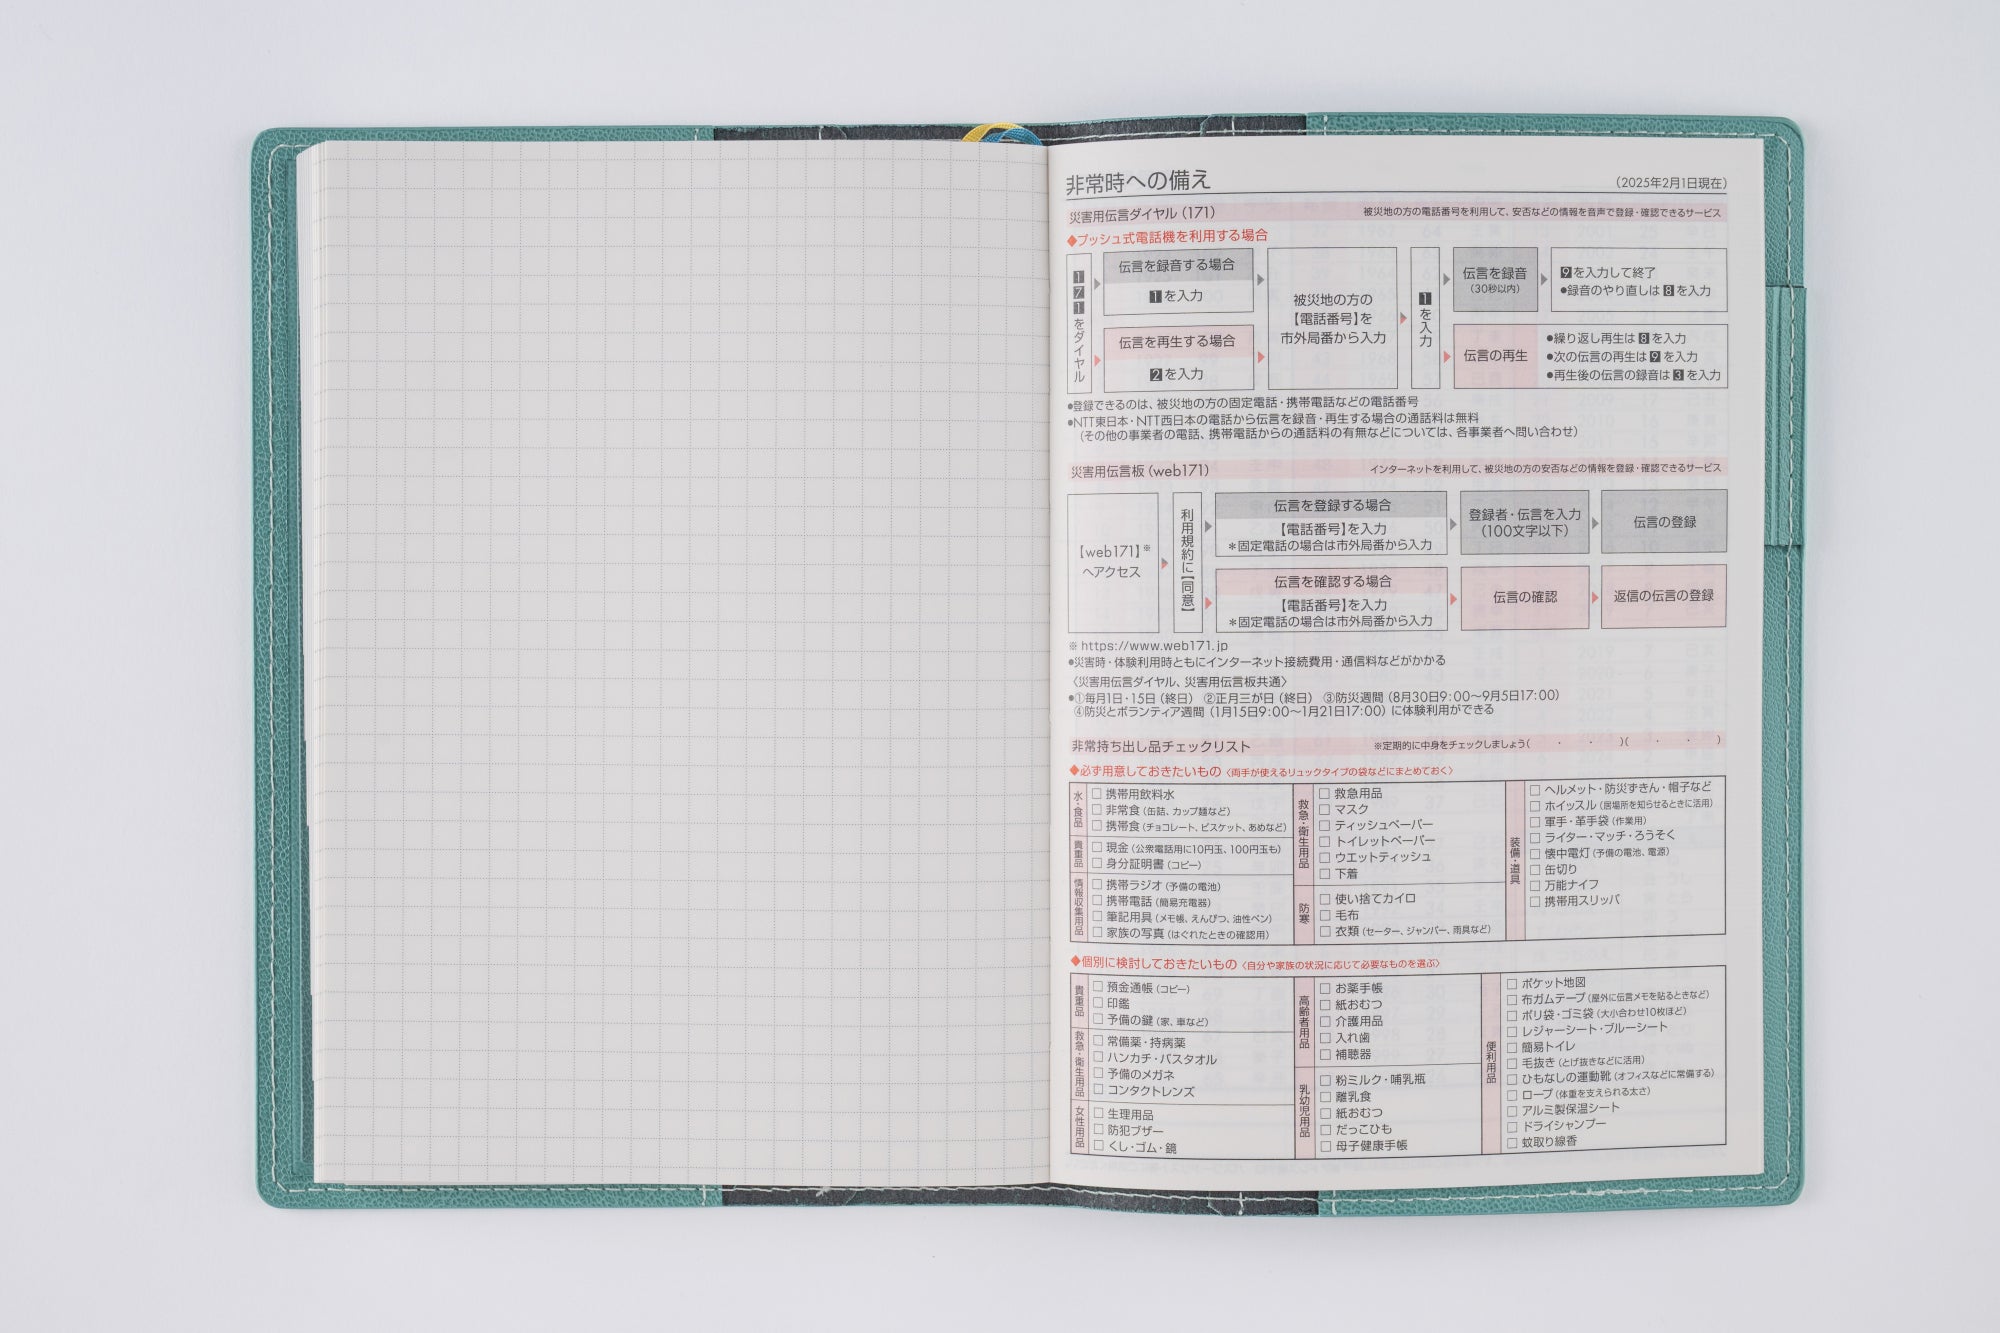 非常時への備え
（2025年2月1日現在）
災害用伝言ダイヤル（171）
被災地の方の電話番号を利用して、安否などの情報を音声で登録・確認できるサービス
◆プッシュ式電話機を利用する場合
171をダイヤル
伝言を録音する場合
1を入力
伝言を再生する場合
2を入力
被災地の方の
【電話番号】を
市外局番から入力
1を入力
伝言を録音
（30秒以内）
9を入力して終了
●録音のやり直しは8を入力
伝言の再生
●繰り返し再生は8を入力
●次の伝言の再生は9を入力
●再生後の伝言の録音は3を入力
●登録できるのは、被災地の方の固定電話・携帯電話などの電話番号
●NTT東日本・NTT西日本の電話から伝言を録音・再生する場合の通話料は無料
（その他の事業者の電話、携帯電話からの通話料の有無などについては、各事業者へ問い合わせ）
災害用伝言板（web171）
インターネットを利用して、被災地の方の安否などの情報を登録・確認できるサービス
【web171】※
へアクセス
利用規約に【同意】
伝言を登録する場合
【電話番号】を入力
＊固定電話の場合は市外局番から入力
登録者・伝言を入力
（100文字以下）
伝言の登録
伝言を確認する場合
【電話番号】を入力
＊固定電話の場合は市外局番から入力
伝言の確認
返信の伝言の登録
※ https://www.web171.jp
●災害時・体験利用時ともにインターネット接続費用・通信料などがかかる
〈災害用伝言ダイヤル、災害用伝言板共通〉
●①毎月1日・15日（終日） ②正月三が日（終日） ③防災週間（8月30日9:00〜9月5日17:00）
④防災とボランティア週間（1月15日9:00〜1月21日17:00）に体験利用ができる
非常持ち出し品チェックリスト
※定期的に中身をチェックしましょう（　・　・　）（　・　・　）
◆必ず用意しておきたいもの〈両手が使えるリュックタイプの袋などにまとめておく〉
水・食品
□携帯用飲料水
□非常食（缶詰、カップ麺など）
□携帯食（チョコレート、ビスケット、あめなど）
貴重品
□現金（公衆電話用に10円玉、100円玉も）
□身分証明書（コピー）
情報収集用品
□携帯ラジオ（予備の電池）
□携帯電話（簡易充電器）
□筆記用具（メモ帳、えんぴつ、油性ペン）
□家族の写真（はぐれたときの確認用）
救急・衛生用品
□救急用品
□マスク
□ティッシュペーパー
□トイレットペーパー
□ウエットティッシュ
□下着
防寒
□使い捨てカイロ
□毛布
□衣類（セーター、ジャンパー、雨具など）
装備・道具
□ヘルメット・防災ずきん・帽子など
□ホイッスル（居場所を知らせるときに活用）
□軍手・革手袋（作業用）
□ライター・マッチ・ろうそく
□懐中電灯（予備の電池、電源）
□缶切り
□万能ナイフ
□携帯用スリッパ
◆個別に検討しておきたいもの〈自分や家族の状況に応じて必要なものを選ぶ〉
貴重品
□預金通帳（コピー）
□印鑑
□予備の鍵（家、車など）
救急・衛生用品
□常備薬・持病薬
□ハンカチ・バスタオル
□予備のメガネ
□コンタクトレンズ
女性用品
□生理用品
□防犯ブザー
□くし・ゴム・鏡
高齢者用品
□お薬手帳
□紙おむつ
□介護用品
□入れ歯
□補聴器
乳幼児用品
□粉ミルク・哺乳瓶
□離乳食
□紙おむつ
□だっこひも
□母子健康手帳
便利用品
□ポケット地図
□布ガムテープ（屋外に伝言メモを貼るときなど）
□ポリ袋・ゴミ袋（大小合わせ10枚ほど）
□レジャーシート・ブルーシート
□簡易トイレ
□毛抜き（とげ抜きなどに活用）
□ひもなしの運動靴（オフィスなどに常備する）
□ロープ（体重を支えられる太さ）
□アルミ製保温シート
□ドライシャンプー
□蚊取り線香